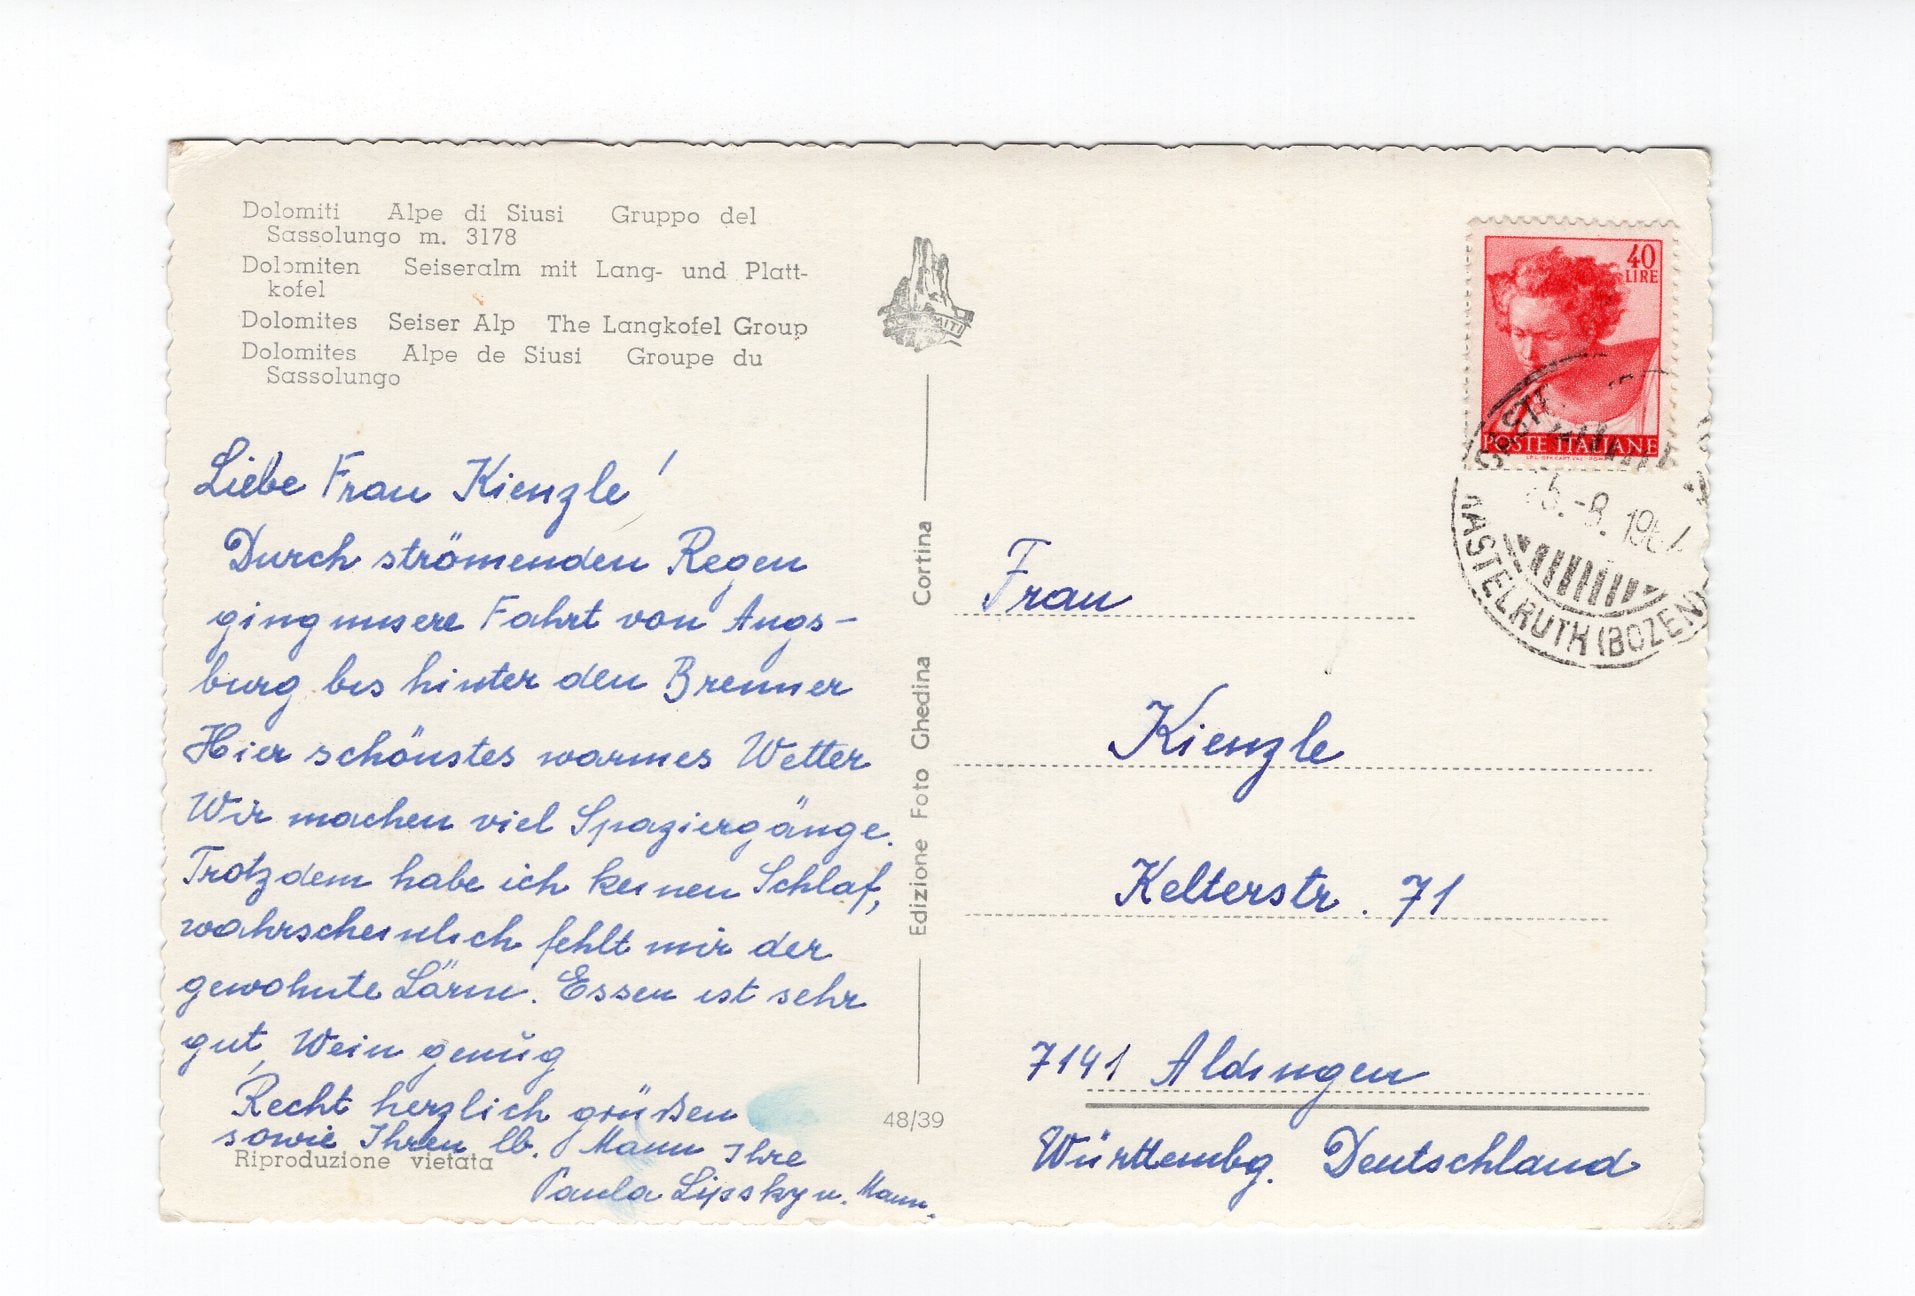 Dolomiti Alpe di Siusi Gruppo del
Sassolungo m. 3178
Dolomiten Seiseralm mit Lang- und Platt-
kofel
Dolomites Seiser Alp The Langkofel Group
Dolomites Alpe de Siusi Groupe du
Sassolungo
Liebe Frau Kienzle!
Durch strömenden Regen
ging unsere Fahrt von Augs-
burg bis hinter den Brenner
Hier schönstes warmes Wetter
Wir machen viel Spaziergänge.
Trotzdem habe ich keinen Schlaf,
wahrscheinlich fehlt mir der
gewohnte Lärm. Essen ist sehr
gut, Wein genug
Recht herzlich grüßen
sowie Ihren lb. Mann Ihre
Paula Lipsky u. Mann.
Riproduzione vietata
48/39
Edizione Foto Ghedina Cortina
40
LIRE
POSTE ITALIANE
-8.196
KASTELRUTH (BOZEN)
Frau
Kienzle
Kelterstr. 71
7141 Aldingen
Württembg. Deutschland